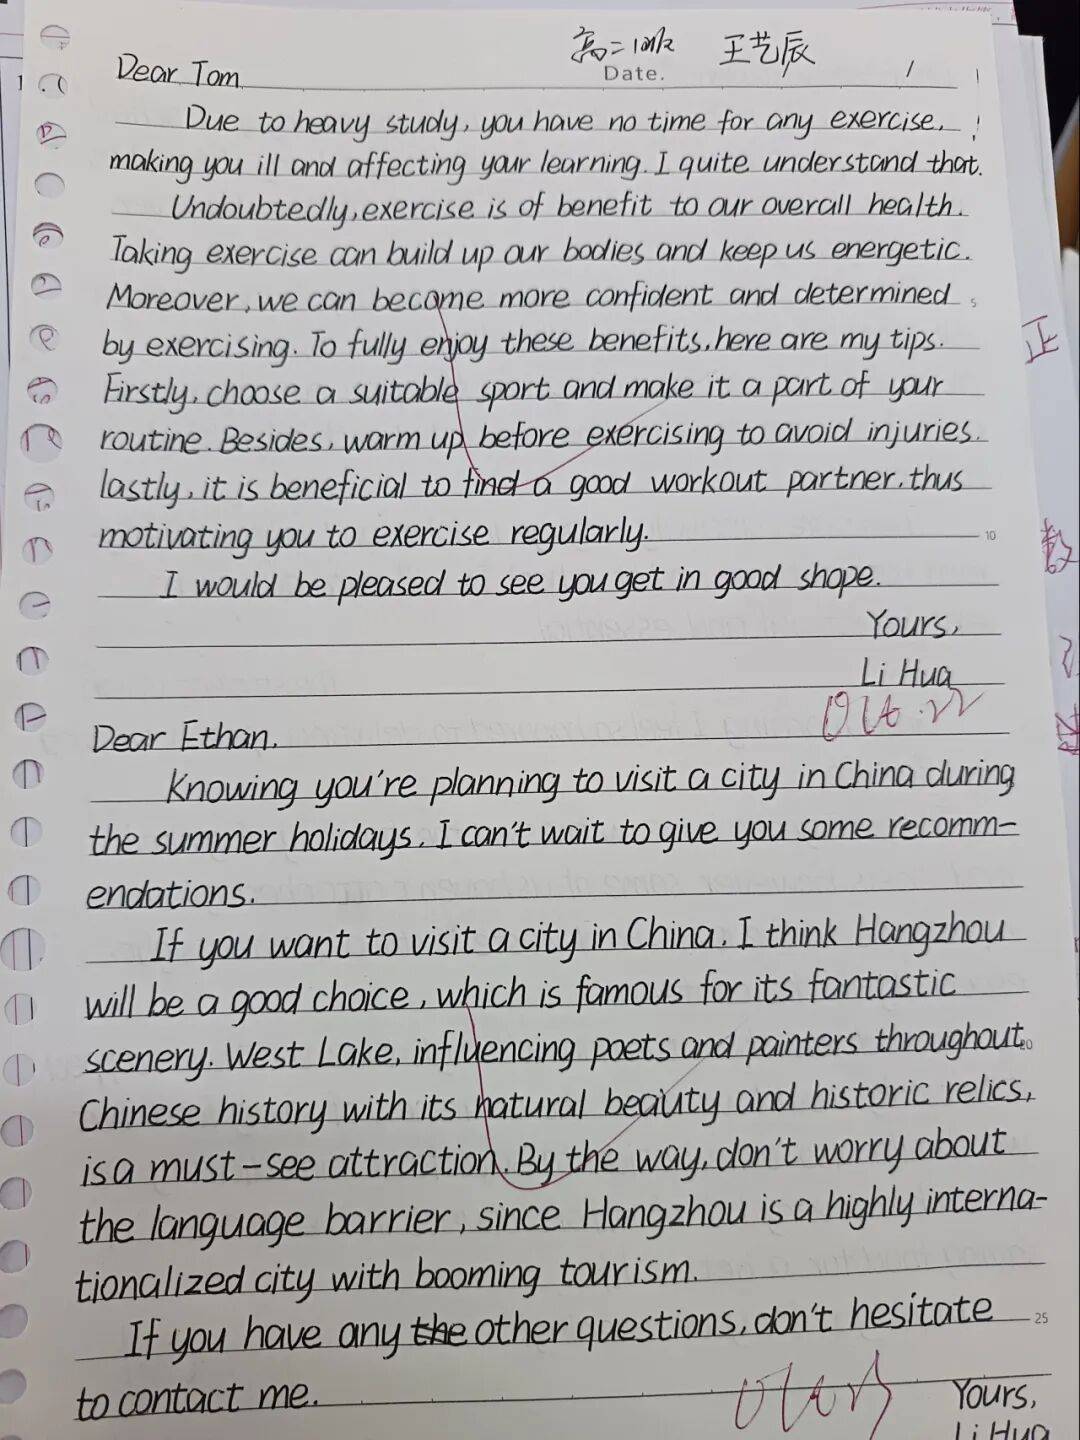 高二 王艺辰
Date.
Dear Tom
Due to heavy study, you have no time for any exercise,
making you ill and affecting your learning. I quite understand that.
Undoubtedly, exercise is of benefit to our overall health.
Taking exercise can build up our bodies and keep us energetic.
Moreover, we can become more confident and determined
5
by exercising. To fully enjoy these benefits, here are my tips.
Firstly, choose a suitable sport and make it a part of your
routine. Besides, warm up before exercising to avoid injuries.
lastly, it is beneficial to find a good workout partner, thus
motivating you to exercise regularly.
10
I would be pleased to see you get in good shape.
Yours,
Li Hua
Oct. 22
Dear Ethan,
Knowing you're planning to visit a city in China during
the summer holidays, I can't wait to give you some recomm-
endations.
If you want to visit a city in China, I think Hangzhou
will be a good choice, which is famous for its fantastic
scenery. West Lake, influencing poets and painters throughout
20
Chinese history with its natural beauty and historic relics,
is a must-see attraction. By the way, don't worry about
the language barrier, since Hangzhou is a highly interna-
tionalized city with booming tourism.
If you have any the other questions, don't hesitate
25
to contact me.
Yours,
Li Hua